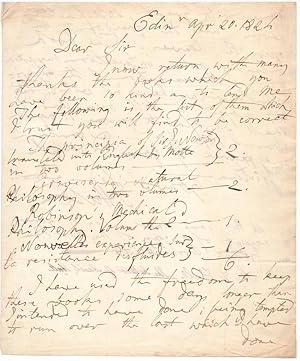 Edinr Apr 20. 1824
Dear Sir
I now return with many
thanks the books which you
have been so kind as to lend me
The following is the list of them which
I trust you will find to be correct
The principia of Sir I. Newton
translated into English by Motte } 2.
in two volumes
natural
Philosophy in two volumes — 2.
Robinson's Mechanical
Philosophy. Volume the 2d — 1.
Nouvelles experiences sur
la resistance des fluides } — 1.
6.
I have used the freedom to keep
these books some days longer than
I intended to have done, being tempted
to run over the last which I have
done